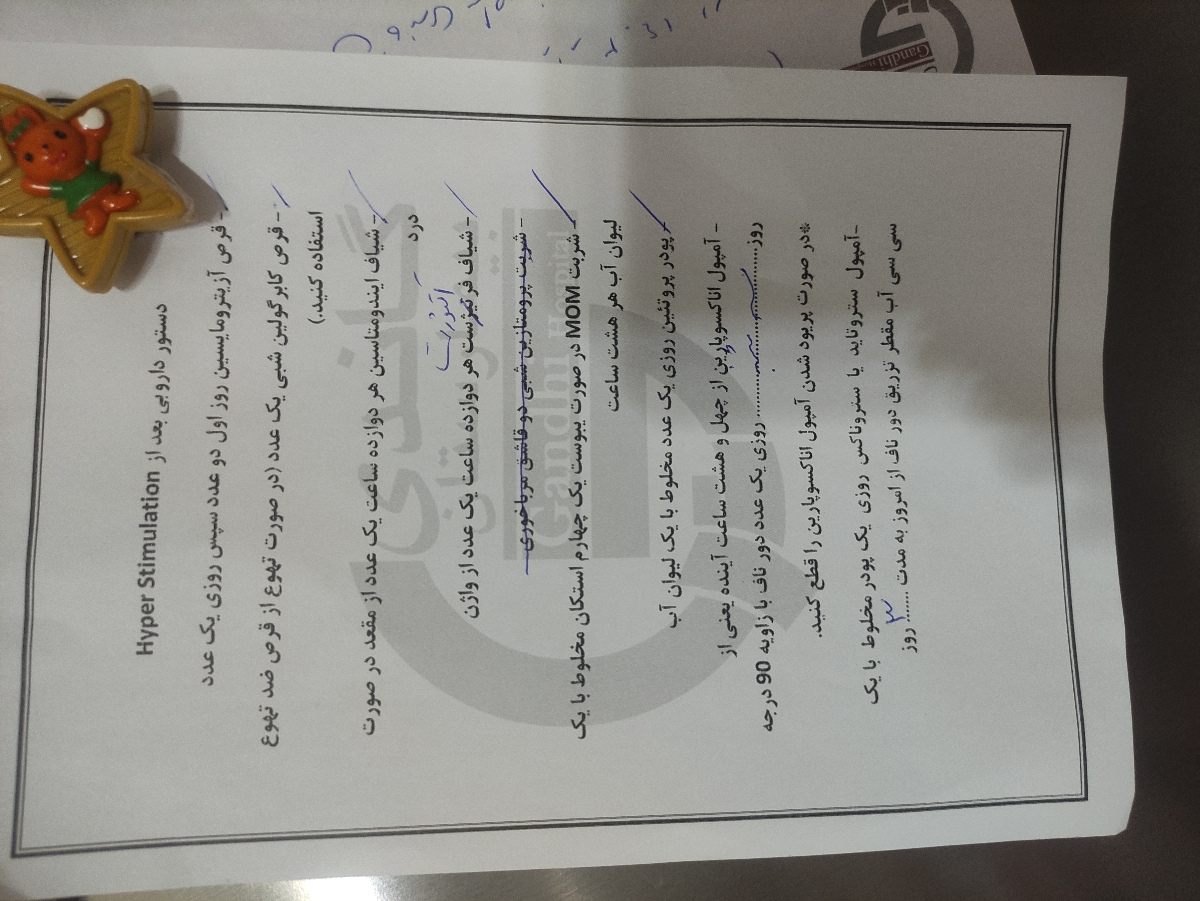 دستور دارویی بعد از Hyper Stimulation
- قرص آزیترومایسین روز اول دو عدد سپس روزی یک عدد
- قرص کابرگولین شبی یک عدد (در صورت تهوع از قرص ضد تهوع
استفاده کنید.)
- شیاف ایندومتاسین هر دوازده ساعت یک عدد از مقعد در صورت
درد
- شیاف فرتیژست هر دوازده ساعت یک عدد از واژن
- شربت پرومتازین شبی دو قاشق مرباخوری
- شربت MOM در صورت یبوست یک چهارم استکان مخلوط با یک
لیوان آب هر هشت ساعت
پودر پروتئین روزی یک عدد مخلوط با یک لیوان آب
- آمپول اناکسوپارین از چهل و هشت ساعت آینده یعنی از
روز ........................ روزی یک عدد دور ناف با زاویه 90 درجه
*در صورت پریود شدن آمپول اناکسوپارین را قطع کنید.
-آمپول ستروتاید یا ستروناکس روزی یک پودر مخلوط با یک
سی سی آب مقطر تزریق دور ناف از امروز به مدت ...۳.... روز
گاندی
بیمارستان
Gandhi Hospital
Gandhi